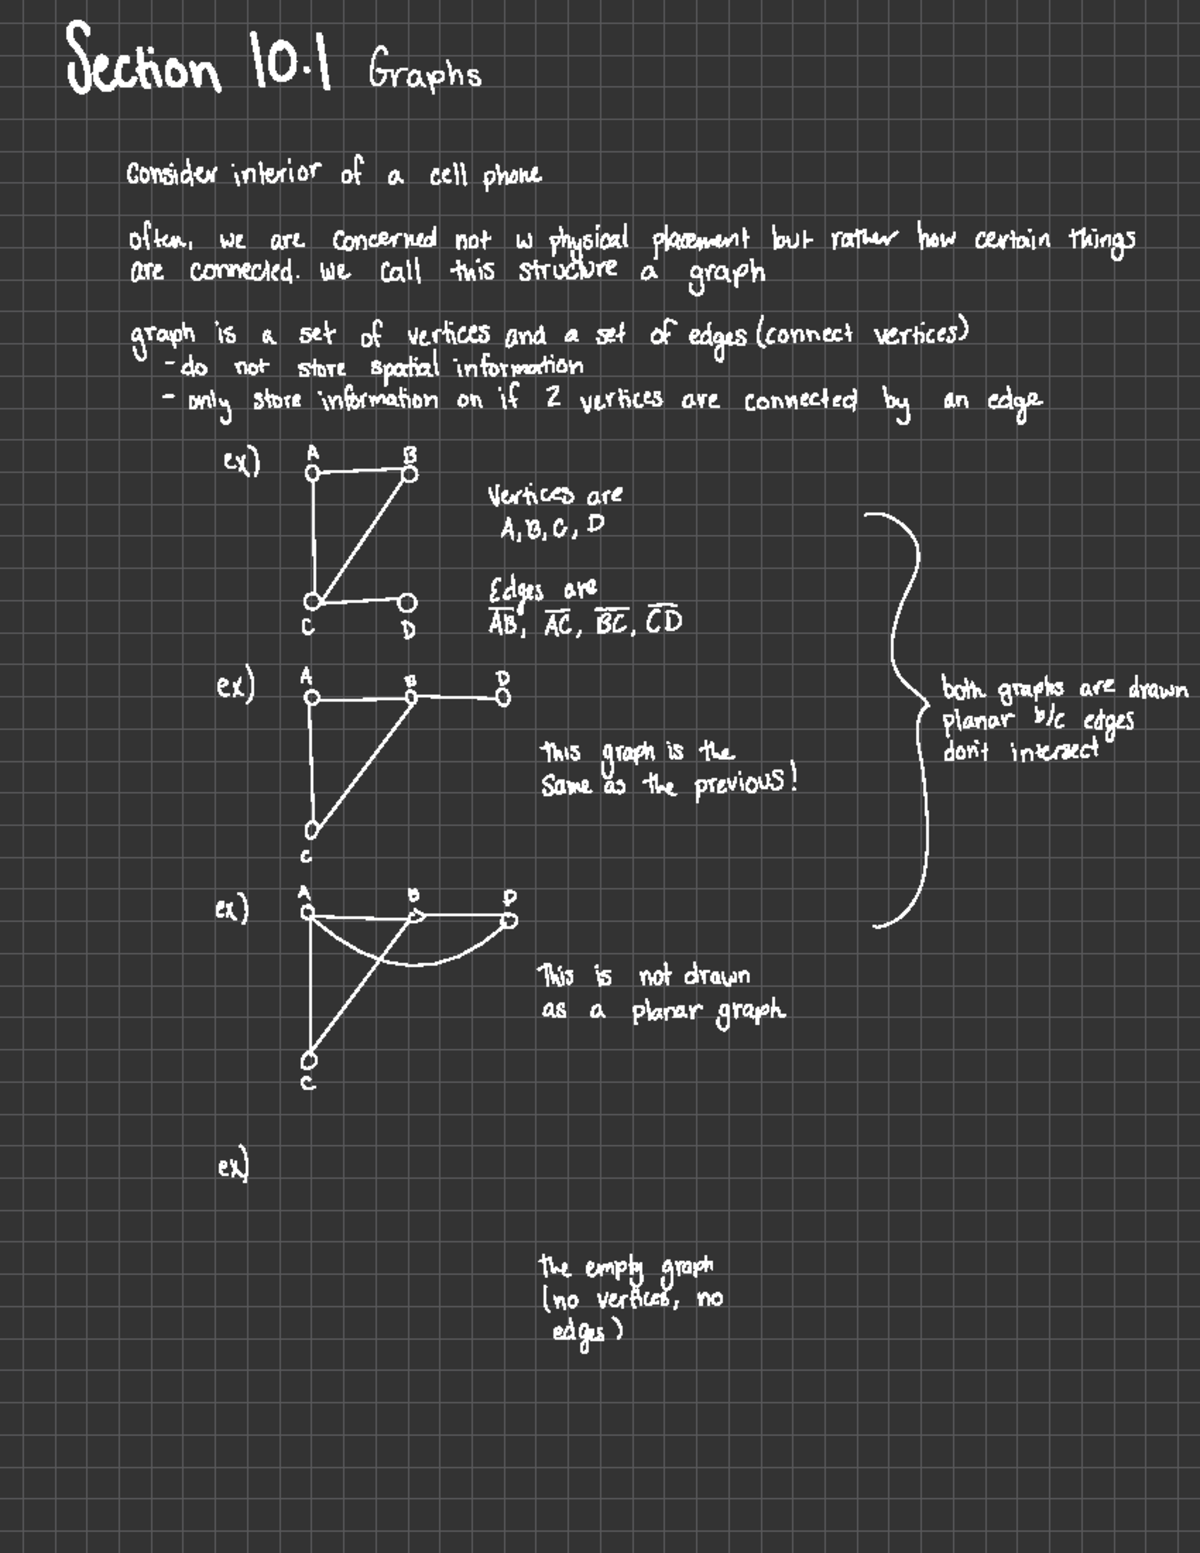 Section 10.1 Graphs
Consider interior of a cell phone
often, we are concerned not w physical placement but rather how certain things
are connected. we call this structure a graph
graph is a set of vertices and a set of edges (connect vertices)
- do not store spatial information
- only store information on if 2 vertices are connected by an edge
ex)
A B
C D
Vertices are
A, B, C, D
Edges are
A̅B̅, A̅C̅, B̅C̅, C̅D̅
ex)
A B D
C
This graph is the
same as the previous!
both graphs are drawn
planar b/c edges
don't intersect
ex)
A B D
C
This is not drawn
as a planar graph
ex)
the empty graph
(no vertices, no
edges)